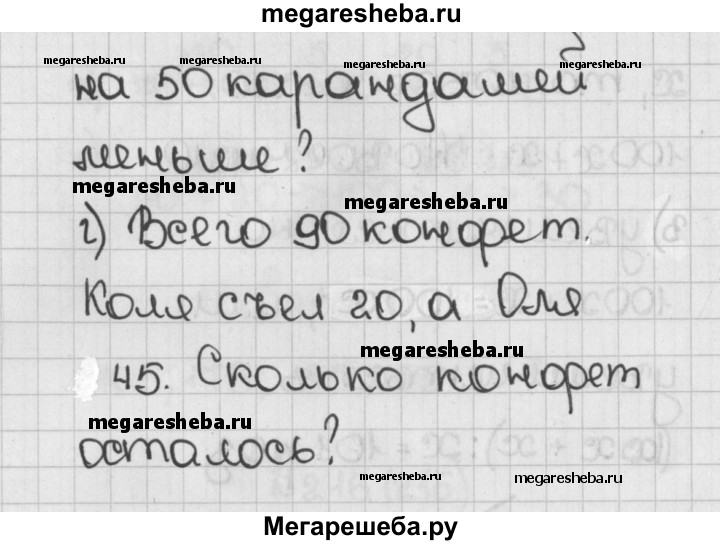 megaresheba.ru
megaresheba.ru megaresheba.ru megaresheba.ru
на 50 карандашей
меньше?
megaresheba.ru
megaresheba.ru
г) Всего 90 конфет.
Коля съел 20, а Оля
megaresheba.ru
45. Сколько конфет
megaresheba.ru
осталось?
megaresheba.ru megaresheba.ru
Мегарешеба.ру